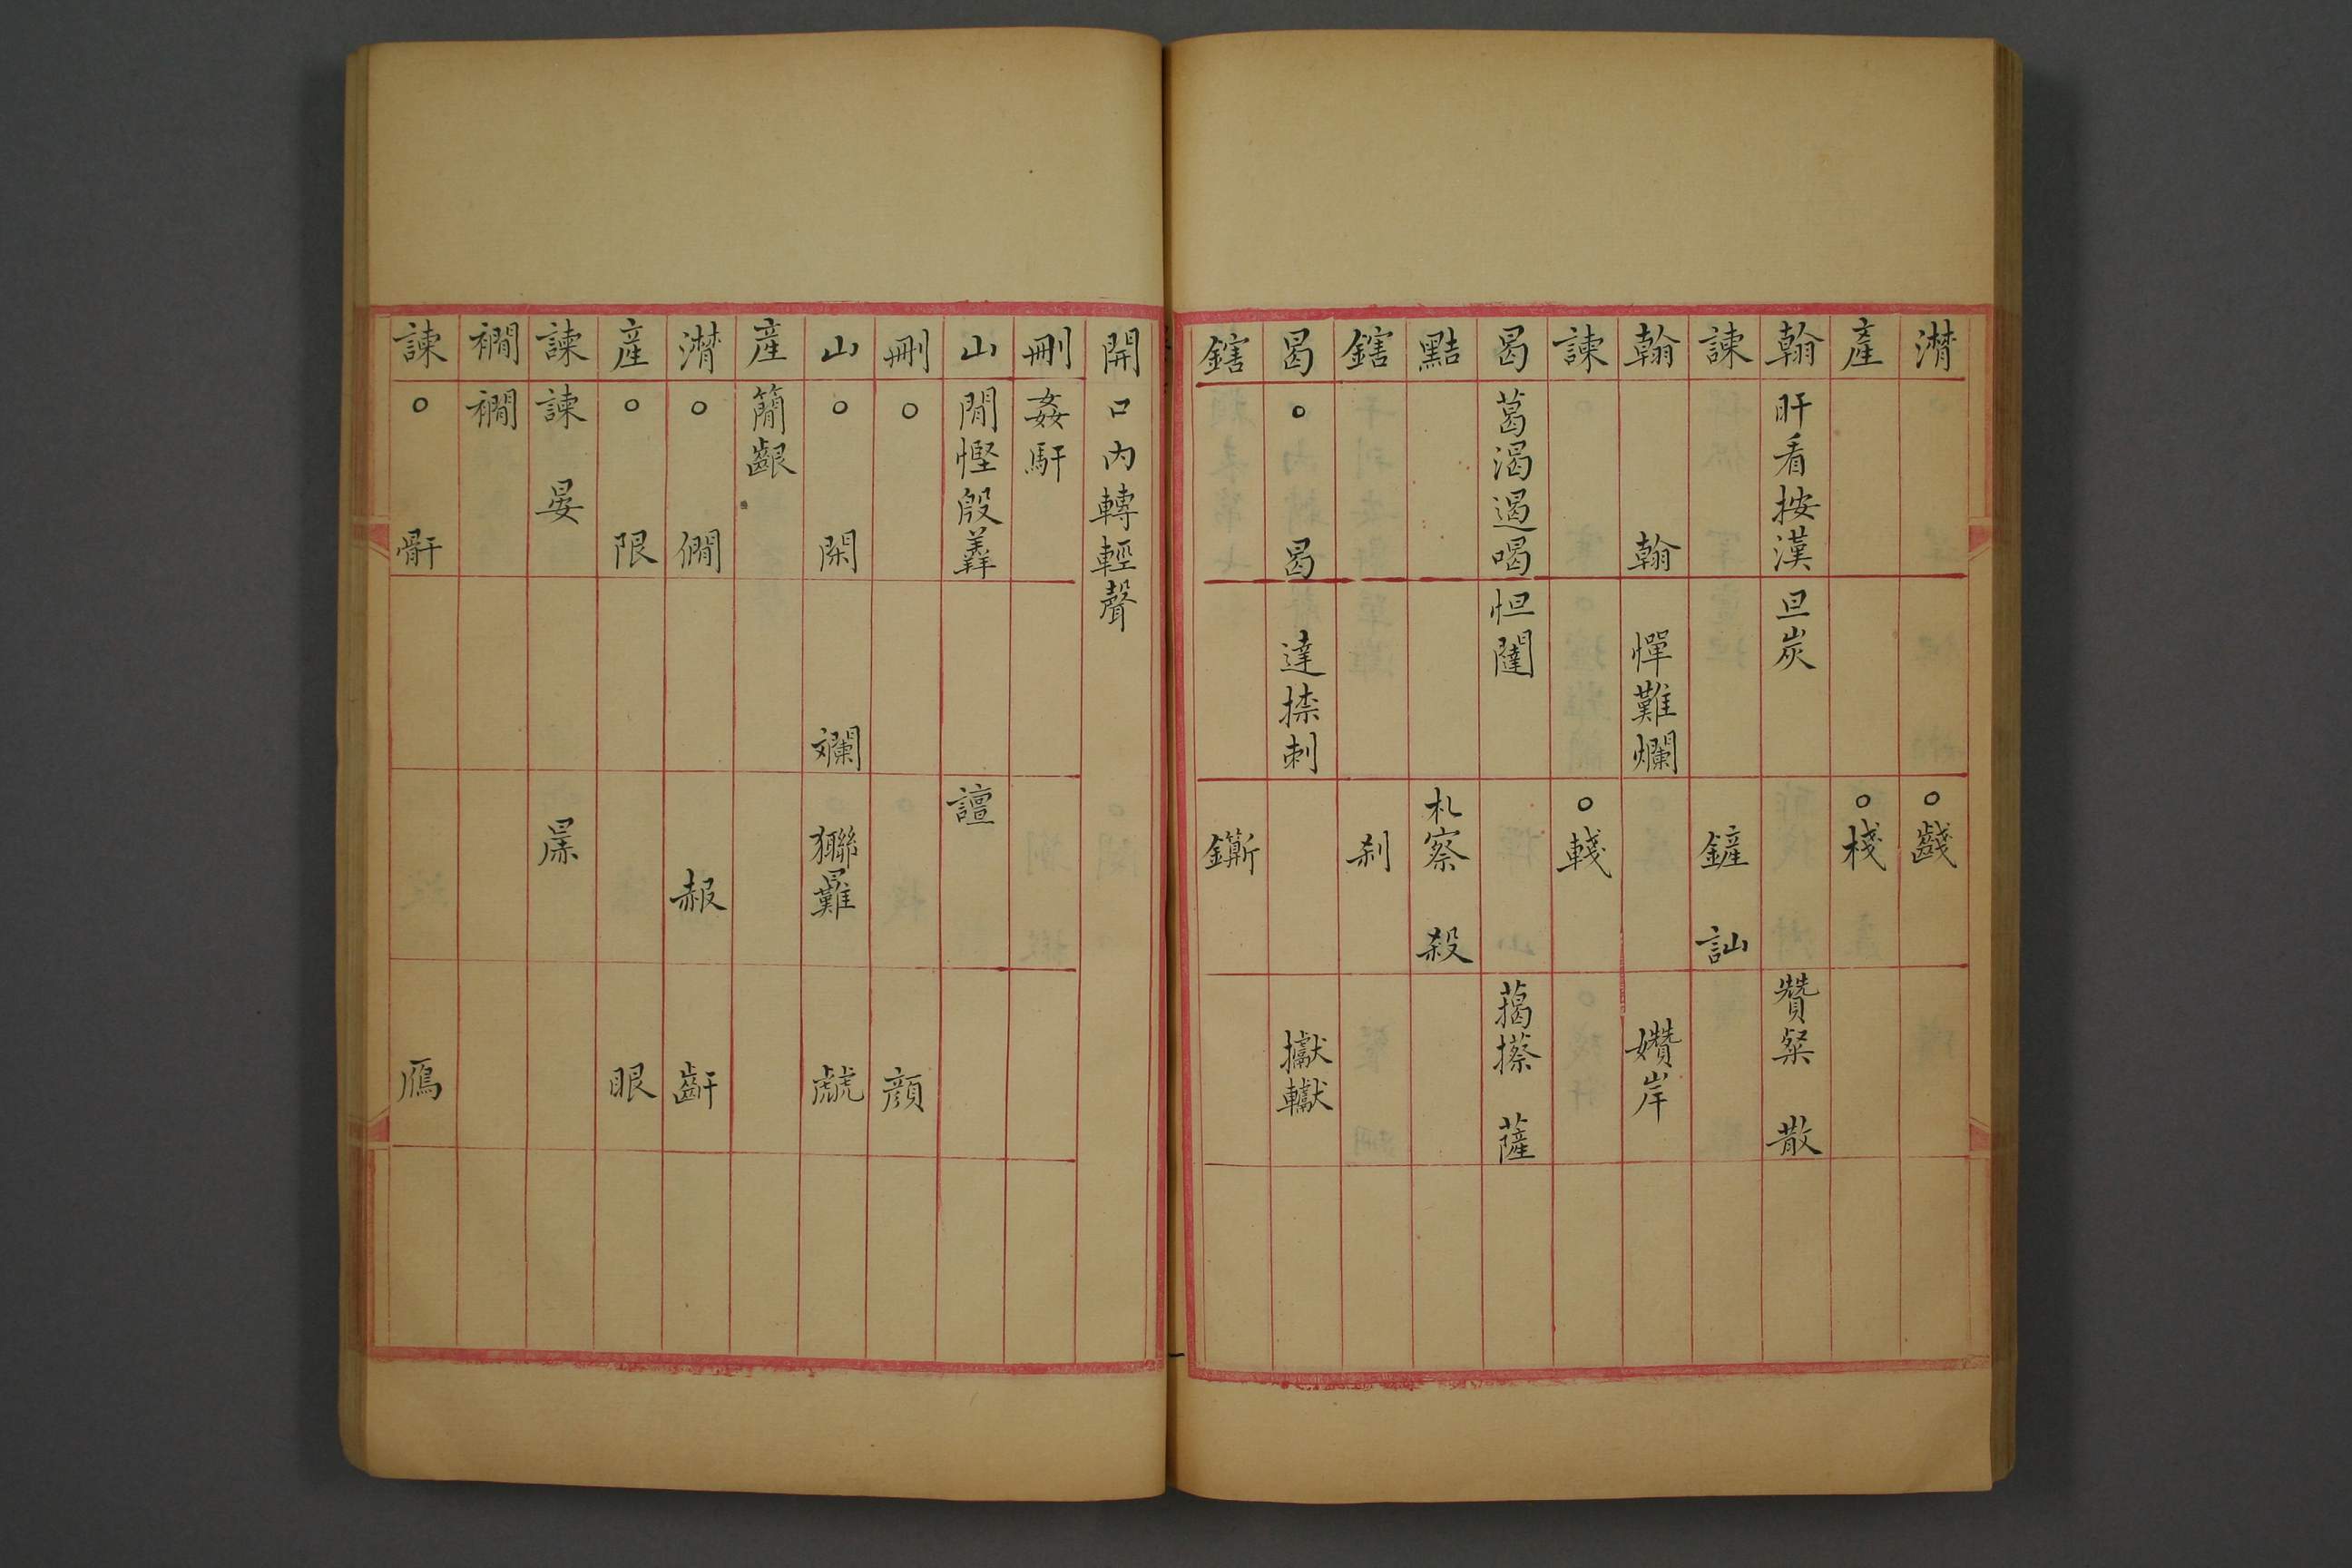 潸 ○ 齴
產 ○ 棧
翰 旰看按漢 旦炭 贊粲 散
諫 鏟 訕
翰 翰 憚難爛 攢岸
諫 ○ 輚
曷 葛渴遏喝 怛闥 擦 薩
黠 札察 殺
鎋 刹
曷 ○ 曷 達捺剌
鎋
開口內轉輕聲
刪 姦馯
山 閒慳殷羴 譠
刪 ○ 顔
山 ○ 閑 斕 虥
產 簡齦
潸 ○ 僩 赧 齗
產 ○ 限 眼
諫 諫 晏
襉 襉
諫 ○ 骭 鴈